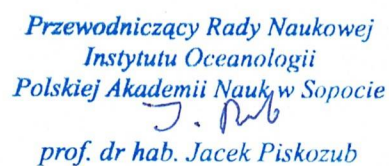 Przewodniczący Rady Naukowej
Instytutu Oceanologii
Polskiej Akademii Nauk w Sopocie
prof. dr hab. Jacek Piskozub